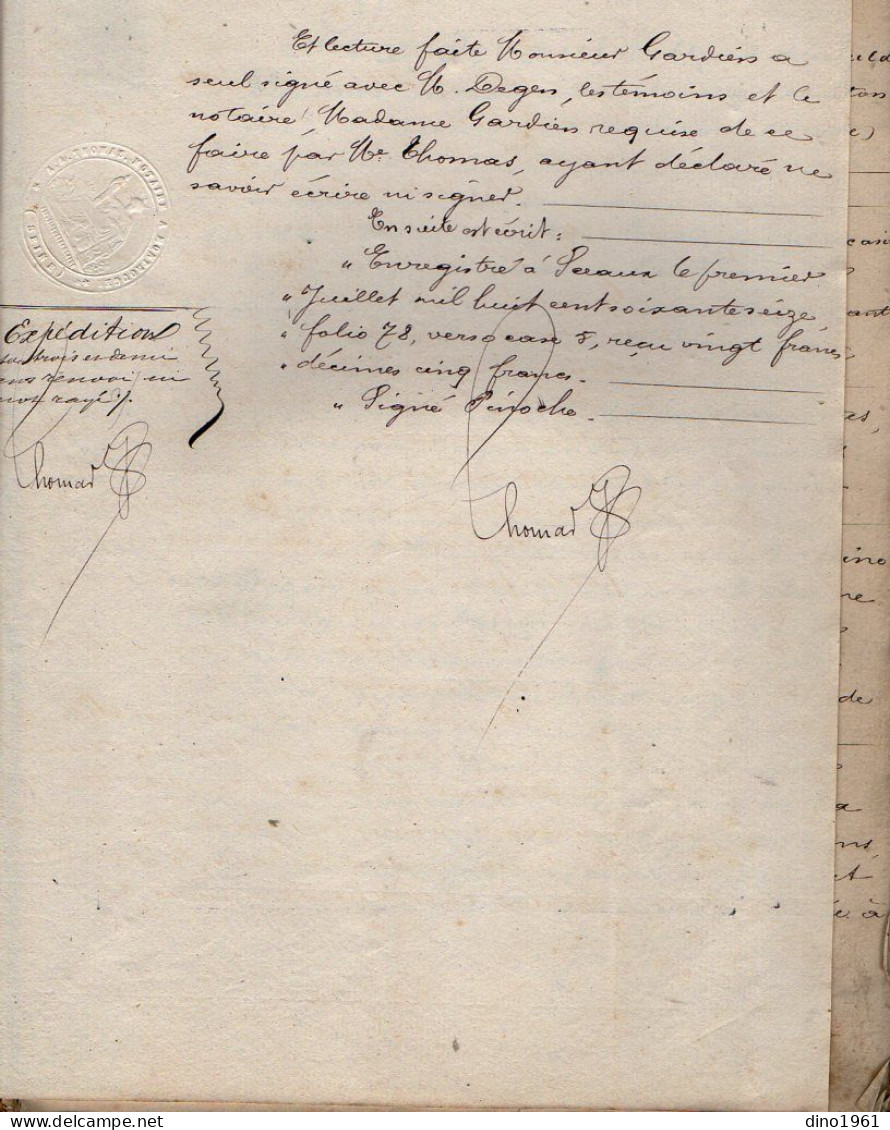 Et lecture faite Monsieur Gardien a
seul signé avec M. Degen, les témoins et le
notaire, Madame Gardien requise de ce
faire par Me Thomas, ayant déclaré ne
savoir écrire ni signer.
Ensuite est écrit :
" Enregistré à Sceaux le premier
" Juillet mil huit cent soixante seize
" folio 78, verso case 8, reçu vingt francs
" décimes cinq francs.
" Signé Pinoche.
Expédition
trois et demi
sans renvoi ni
mot rayé
Thomas
Thomas
casi
ant
ino
re
de
a
ns,
et
à
dino1961